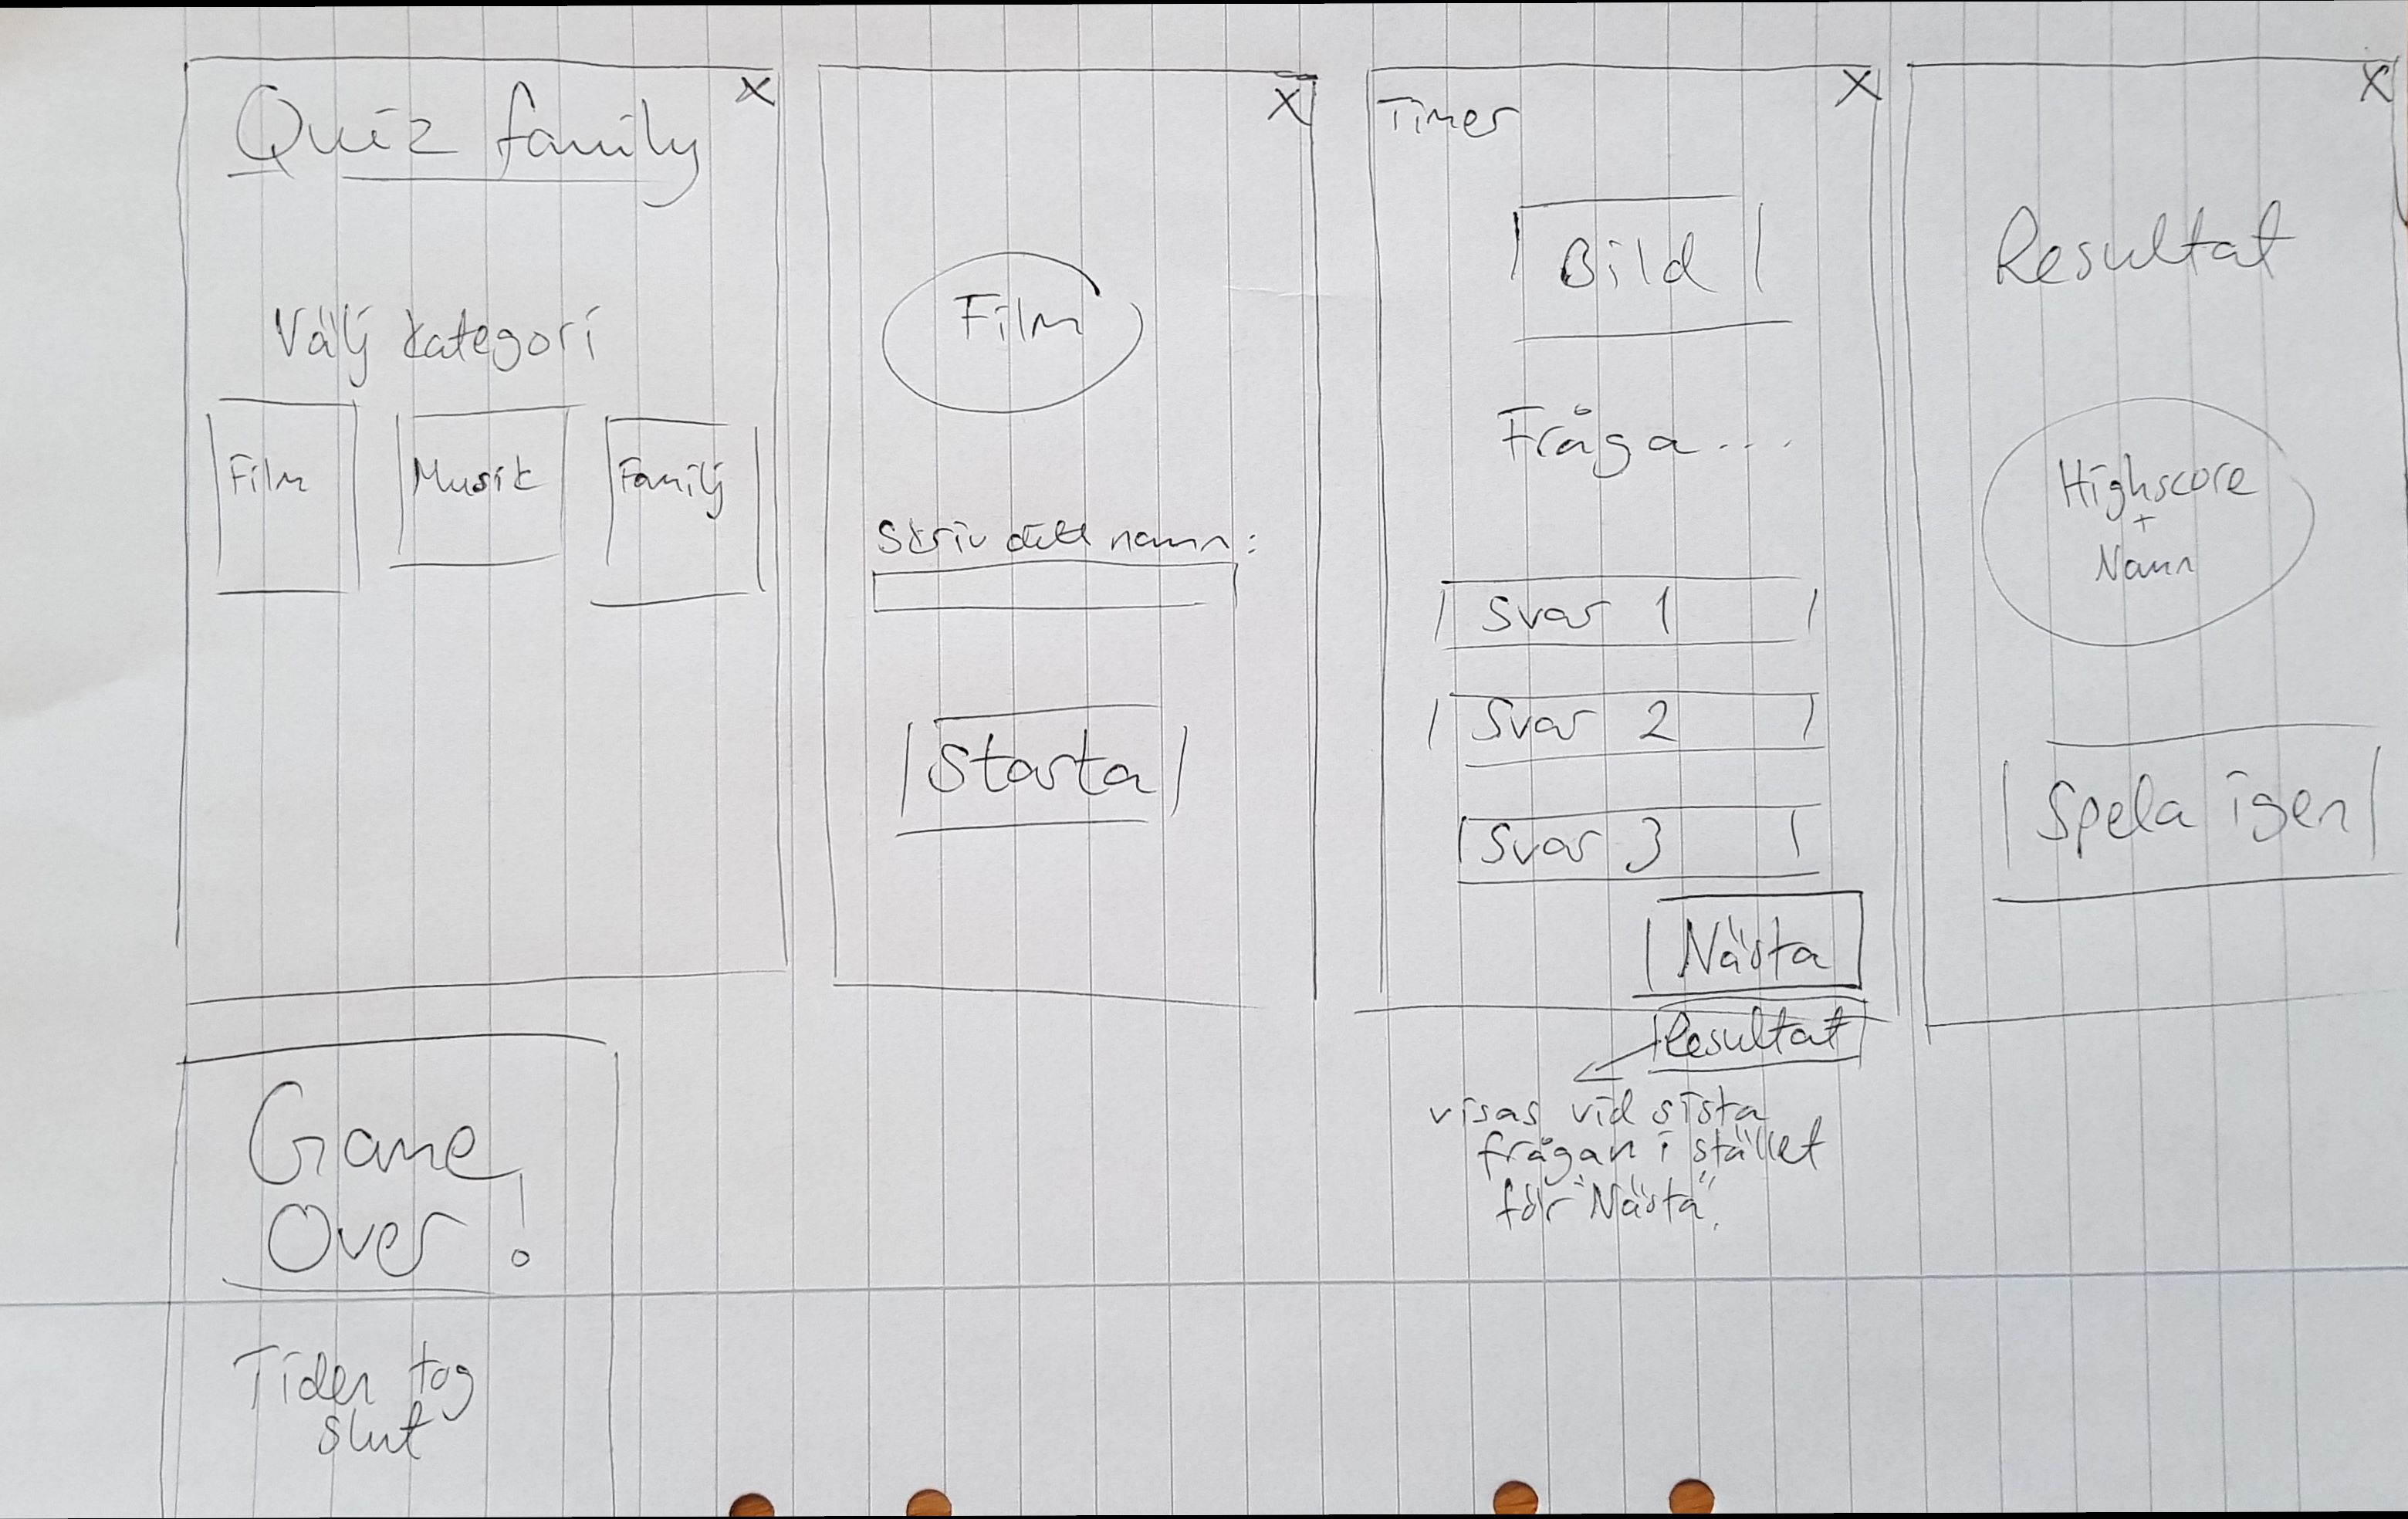 X
Quiz family
Välj kategori
Film
Musik
Familj
X
Film
Skriv ditt namn:
Starta
X
Timer
Bild
Fråga...
Svar 1
Svar 2
Svar 3
Nästa
Resultat
visas vid sista
frågan i stället
för "Nästa".
X
Resultat
Highscore
+
Namn
Spela igen
Game
Over!
Tiden tog
slut